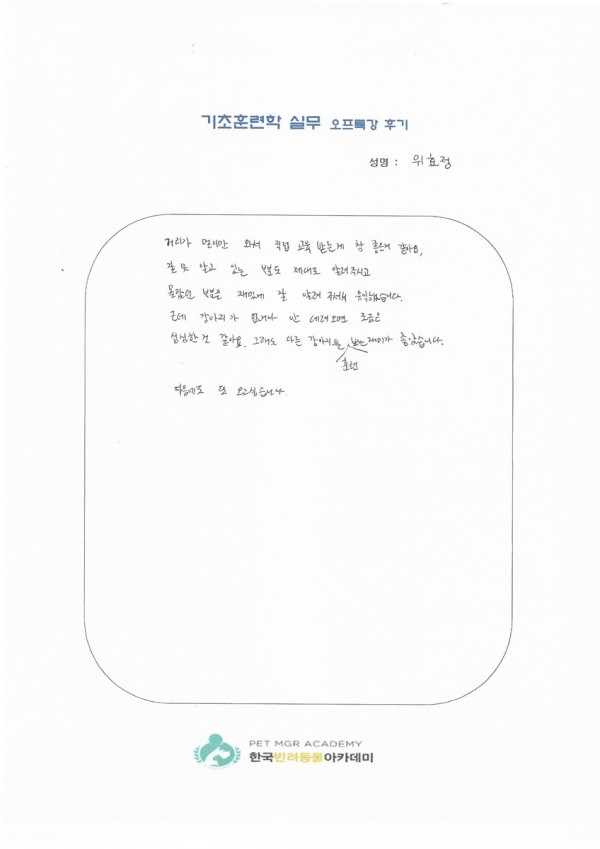 기초훈련학 실무 오프특강 후기
성명 : 위효정
거리가 멀지만 와서 직접 교육 받는게 참 좋은거 같아요.
잘 못 알고 있는 부분도 제대로 알려주시고
몰랐던 부분을 재밌게 잘 알려 주셔서 유익했습니다.
근데 강아지가 없거나 안 데려오면 조금은
심심한 것 같아요. 그래도 다른 강아지들 보는 재미가 좋았습니다.
훈련
다음에도 또 오고싶습니다.
PET MGR ACADEMY
한국반려동물아카데미